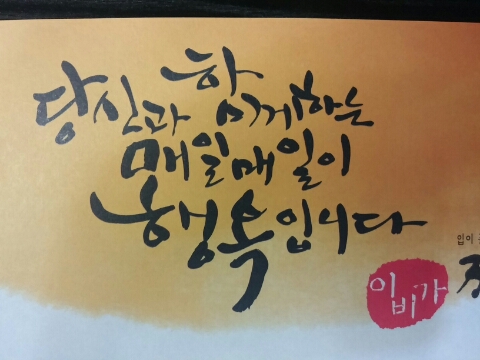 당신과 함께하는
매일매일이
행복입니다
입이
이비가